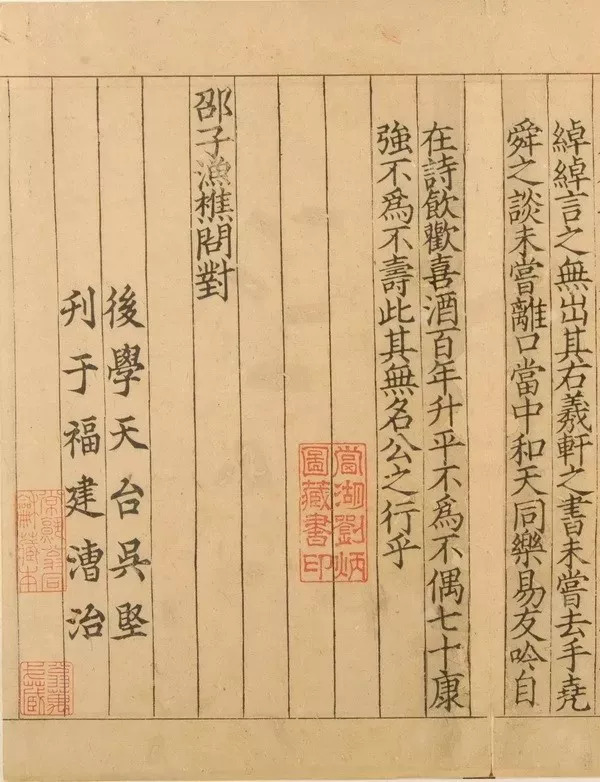 綽綽言之無出其右羲軒之書未嘗去手堯
舜之談未嘗離口當中和天同樂易友吟自
在詩飲歡喜酒百年升平不為不偶七十康
強不為不壽此其無名公之行乎
邵子漁樵問對
後學天台吳堅
刊于福建漕治
當湖劉炳
圖藏書印